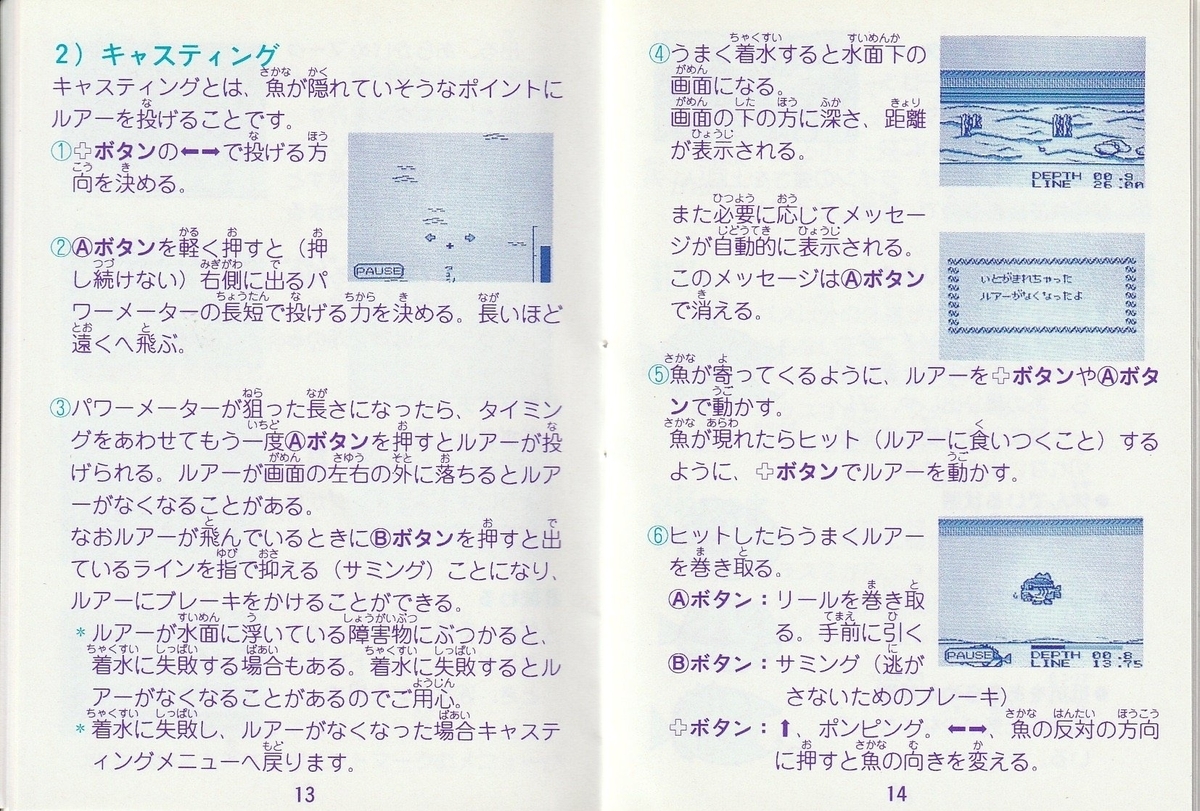 2）キャスティング
キャスティングとは、魚が隠れていそうなポイントに
ルアーを投げることです。
①✚ボタンの⬅➡で投げる方
向を決める。
②Ⓐボタンを軽く押すと（押
し続けない）右側に出るパ
ワーメーターの長短で投げる力を決める。長いほど
遠くへ飛ぶ。
PAUSE
③パワーメーターが狙った長さになったら、タイミン
グをあわせてもう一度Ⓐボタンを押すとルアーが投
げられる。ルアーが画面の左右の外に落ちるとルア
ーがなくなることがある。
なおルアーが飛んでいるときにⒷボタンを押すと出
ているラインを指で抑える（サミング）ことになり、
ルアーにブレーキをかけることができる。
*ルアーが水面に浮いている障害物にぶつかると、
着水に失敗する場合もある。着水に失敗するとル
アーがなくなることがあるのでご用心。
*着水に失敗し、ルアーがなくなった場合キャステ
ィングメニューへ戻ります。
13
④うまく着水すると水面下の
画面になる。
画面の下の方に深さ、距離
が表示される。
DEPTH 00.9
LINE 26.00
また必要に応じてメッセー
ジが自動的に表示される。
このメッセージはⒶボタン
で消える。
いとがきれちゃった
ルアーがなくなったよ
⑤魚が寄ってくるように、ルアーを✚ボタンやⒶボタ
ンで動かす。
魚が現れたらヒット（ルアーに食いつくこと）する
ように、✚ボタンでルアーを動かす。
⑥ヒットしたらうまくルアー
を巻き取る。
Ⓐボタン：リールを巻き取
る。手前に引く
Ⓑボタン：サミング（逃が
さないためのブレーキ）
✚ボタン：⬆、ポンピング。⬅➡、魚の反対の方向
に押すと魚の向きを変える。
PAUSE
DEPTH 00.8
LINE 13.75
14